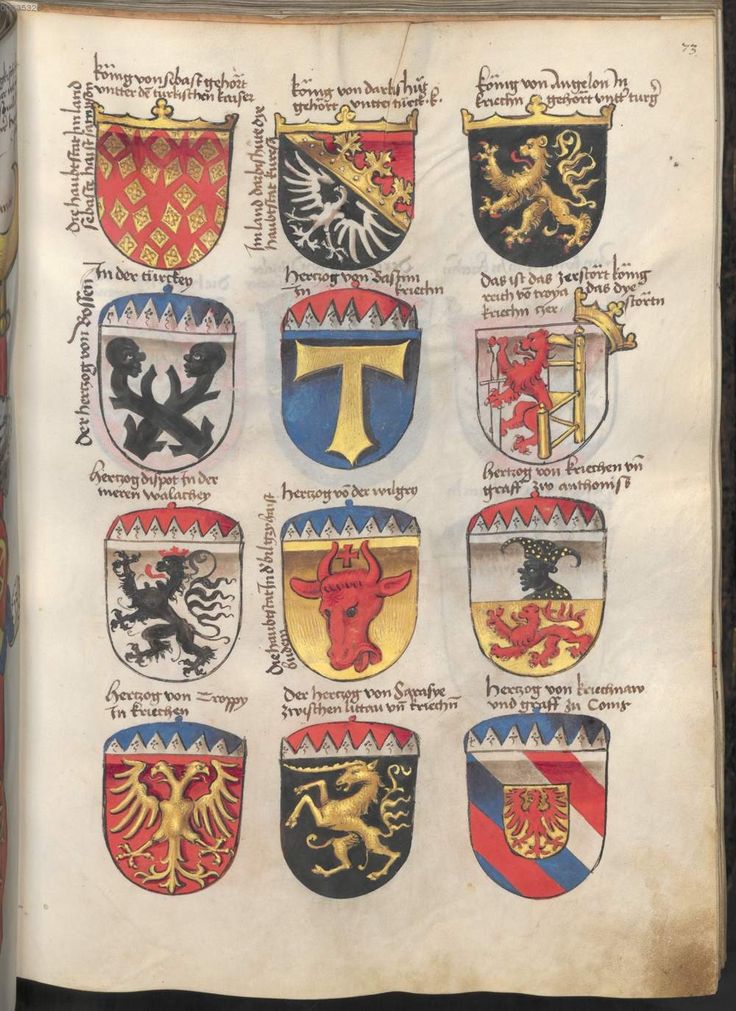 73
König von sebast gehört
vnitter dē türkischen kaiser
die haubtstat im land
sebaste haist
König von darbs hüt
gehört vntter tuerck. k.
Im land darbshüte die
haubtstat
König von Angelon In
kriechn gehört vntter
In der türckey
Der hertzog von Bossen
Hertzog von Bastim
In kriechn
das ist das zerstört König
reich vō troya das dye
kriechn störtn
Hertzog dispot In der
meren walachey
Hertzog vō der wilgry
Die haubtstat In haist
budem
Hertzog von kriechen vn̄
graff zvo anthonis
Hertzog von Troppy
In kriechen
Der hertzog von Sarafye
zwischen littau vn̄ kriechn̄
Hertzog von kriechnaw
vnd graff zu Coms